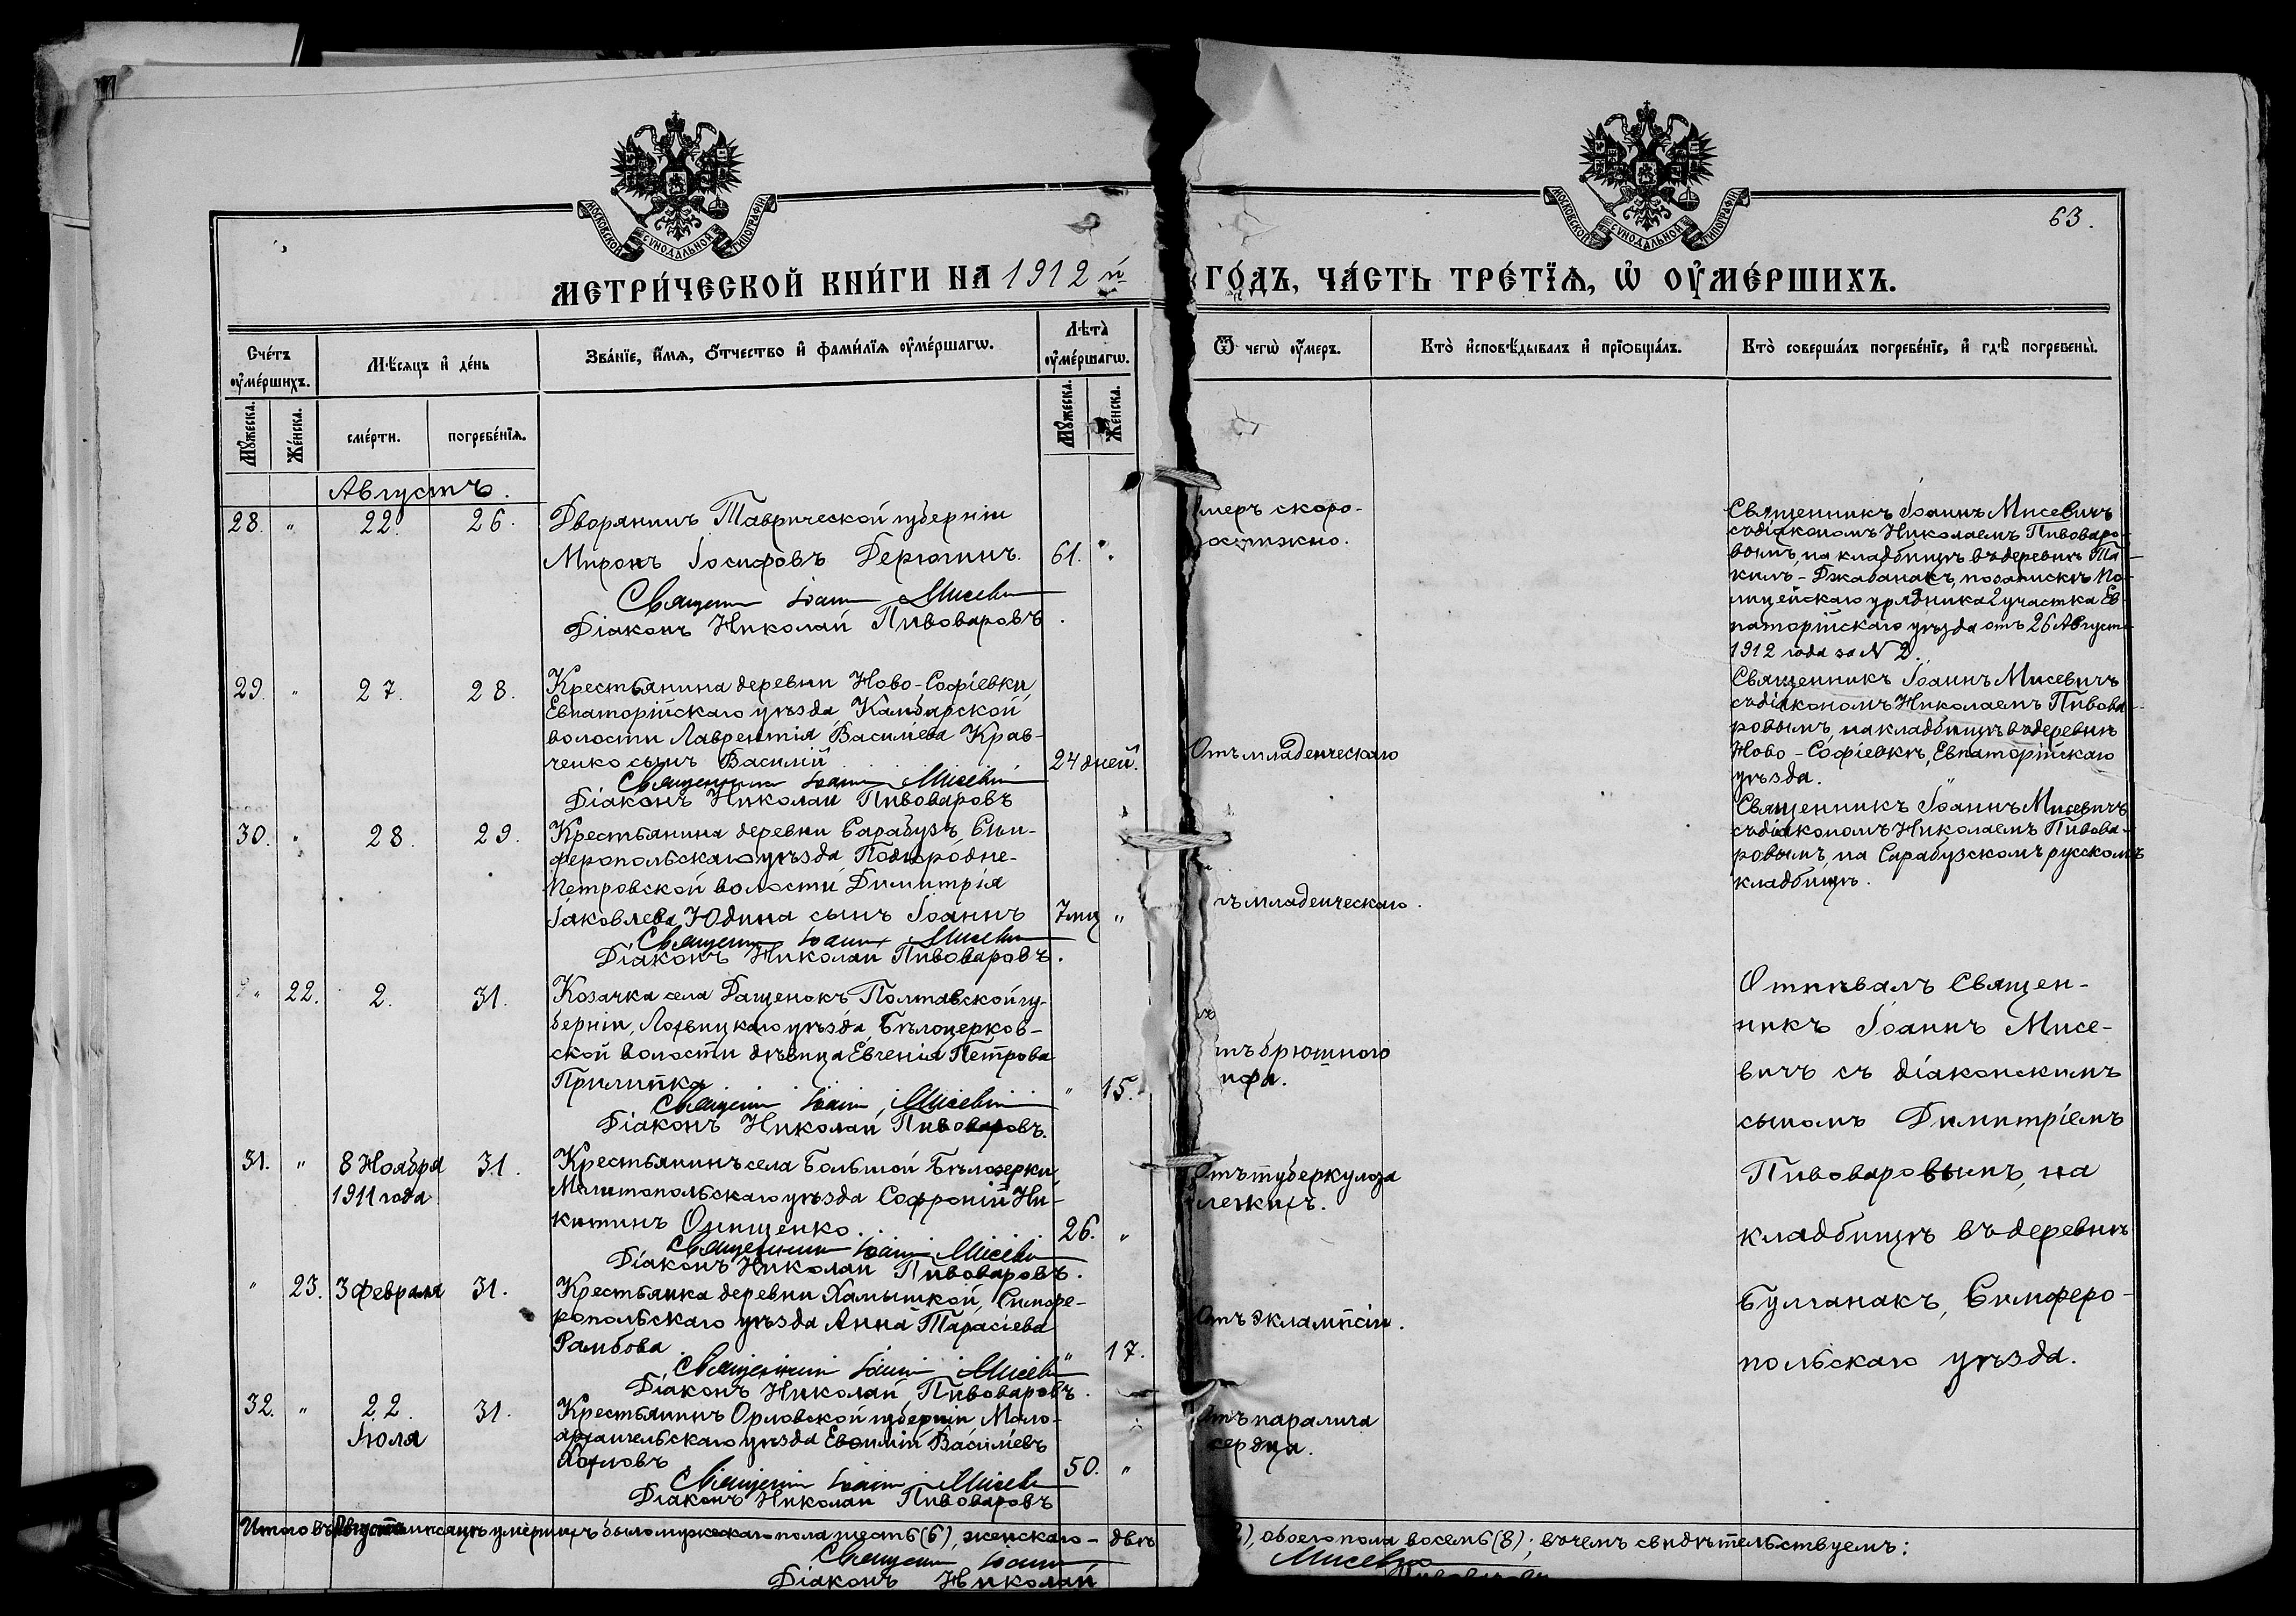 МОСКОВСКОЙ СѴНОДАЛЬНОЙ ТИПОГРАФІИ
МОСКОВСКОЙ СѴНОДАЛЬНОЙ ТИПОГРАФІИ
63.
МЕТРИ́ЧЕСКОЙ КНИ́ГИ НА 1912 й ГО́ДЪ, ЧА́СТЬ ТРЕ́ТЇѦ, Ѡ҆ ОУ҆МЕ́РШИХЪ.
Сче́тъ оу҆ме́ршихъ.
Мѣ́сяцъ и҆ де́нь
Зва́нїе, и҆́мя, ѻ҆́тчество и҆ фами́лїя оу҆ме́ршагѡ.
Лѣ́та оу҆ме́ршагѡ.
Ѿ чегѡ̀ оу҆́меръ.
Кто̀ и҆сповѣ́дывалъ и҆ прїѡбща́лъ.
Кто̀ соверша́лъ погребе́нїе, и҆ гдѣ̀ погребены̀.
Мꙋ́жеска.
Же́нска.
сме́рти.
погребе́нїя.
Мꙋ́жеска.
Же́нска.
Августъ.
28. " 22. 26.
Дворянинъ Таврической губерніи
Миронъ Іосифовъ Дерюгинъ. 61. "
Священ Іоан Мисеви
Діаконъ Николай Пивоваровъ.
меръ скоро-
остижно.
Священникъ Іоаннъ Мисевичъ
съ діакономъ Николаемъ Пивоваро-
вымъ, на кладбищѣ въ деревнѣ Та-
килъ-Джабанакъ, по запискѣ По-
лицейскаго урядника 2 участка Ев-
паторійскаго уѣзда отъ 26 Августа
1912 года за N 2.
29. " 27. 28.
Крестьянина деревни Ново-Софіевки,
Евпаторійскаго уѣзда Камбарской
волости Лаврентія Васильева Крав-
ченко сынъ Василій 24 дней.
Священник Іоанн Мисеви
Діаконъ Николай Пивоваровъ
Отъ младенческаго
Священникъ Іоаннъ Мисевичъ
съ діакономъ Николаемъ Пивова-
ровымъ, на кладбищѣ въ деревнѣ
Ново-Софіевкѣ, Евпаторійскаго
уѣзда.
30. " 28. 29.
Крестьянина деревни Сарабузъ, Сим-
феропольскаго уѣзда Подгородне-
Петровской волости Димитрія
Іаковлева Юдина сынъ Іоаннъ 7 мц "
Священ Іоанн Мисеви
Діаконъ Николай Пивоваровъ.
тъ младенческаго.
Священникъ Іоаннъ Мисевичъ
съ діакономъ Николаемъ Пивова-
ровымъ, на Сарабузскомъ русскомъ
кладбищѣ.
" 22. 2. 31.
Козачка села Дащенокъ Полтавской гу-
берніи, Лохвицкаго уѣзда, Бѣлоцерков-
ской волости дѣвица Евгенія Петрова
Прилипка " 15.
Священ Іоанн Мисеви
Діаконъ Николай Пивоваровъ.
тъ брюшного
ифа.
Отпѣвалъ Священ-
никъ Іоаннъ Мисе-
вичъ съ діаконскимъ
сыномъ Димитріемъ
Пивоваровымъ, на
кладбищѣ въ деревнѣ
Булганакъ, Симферо-
польскаго уѣзда.
31. " 8 Ноября 31.
1911 года
Крестьянинъ села Большой Бѣлозерки
Мелитопольскаго уѣзда Софроній Ни-
китинъ Онищенко. 26. "
Священник Іоанн Мисеви
Діаконъ Николай Пивоваровъ.
Отъ туберкулоза
легкихъ.
" 23. 3 февраля 31.
Крестьянка деревни Хамышкой, Симфе-
ропольскаго уѣзда Анна Тарасіева
Рамбова " 17.
Священник Іоанн Мисеви
Діаконъ Николай Пивоваровъ.
Отъ эклампсіи.
32. " 22. 31.
Іюля
Крестьянинъ Орловской губерніи Мало-
архангельскаго уѣзда Евѳимій Васильевъ
50. "
Священ Іоанн Мисеви
Діаконъ Николай Пивоваровъ
Отъ паралича
сердца.
Итого въ Августѣ мѣсяцѣ умершихъ было мужескаго пола шесть (6), женскаго - двѣ 2), обоего пола восемь (8); въ чемъ свидѣтельствуемъ:
Священ Іоанн Мисевич
Діаконъ Николай